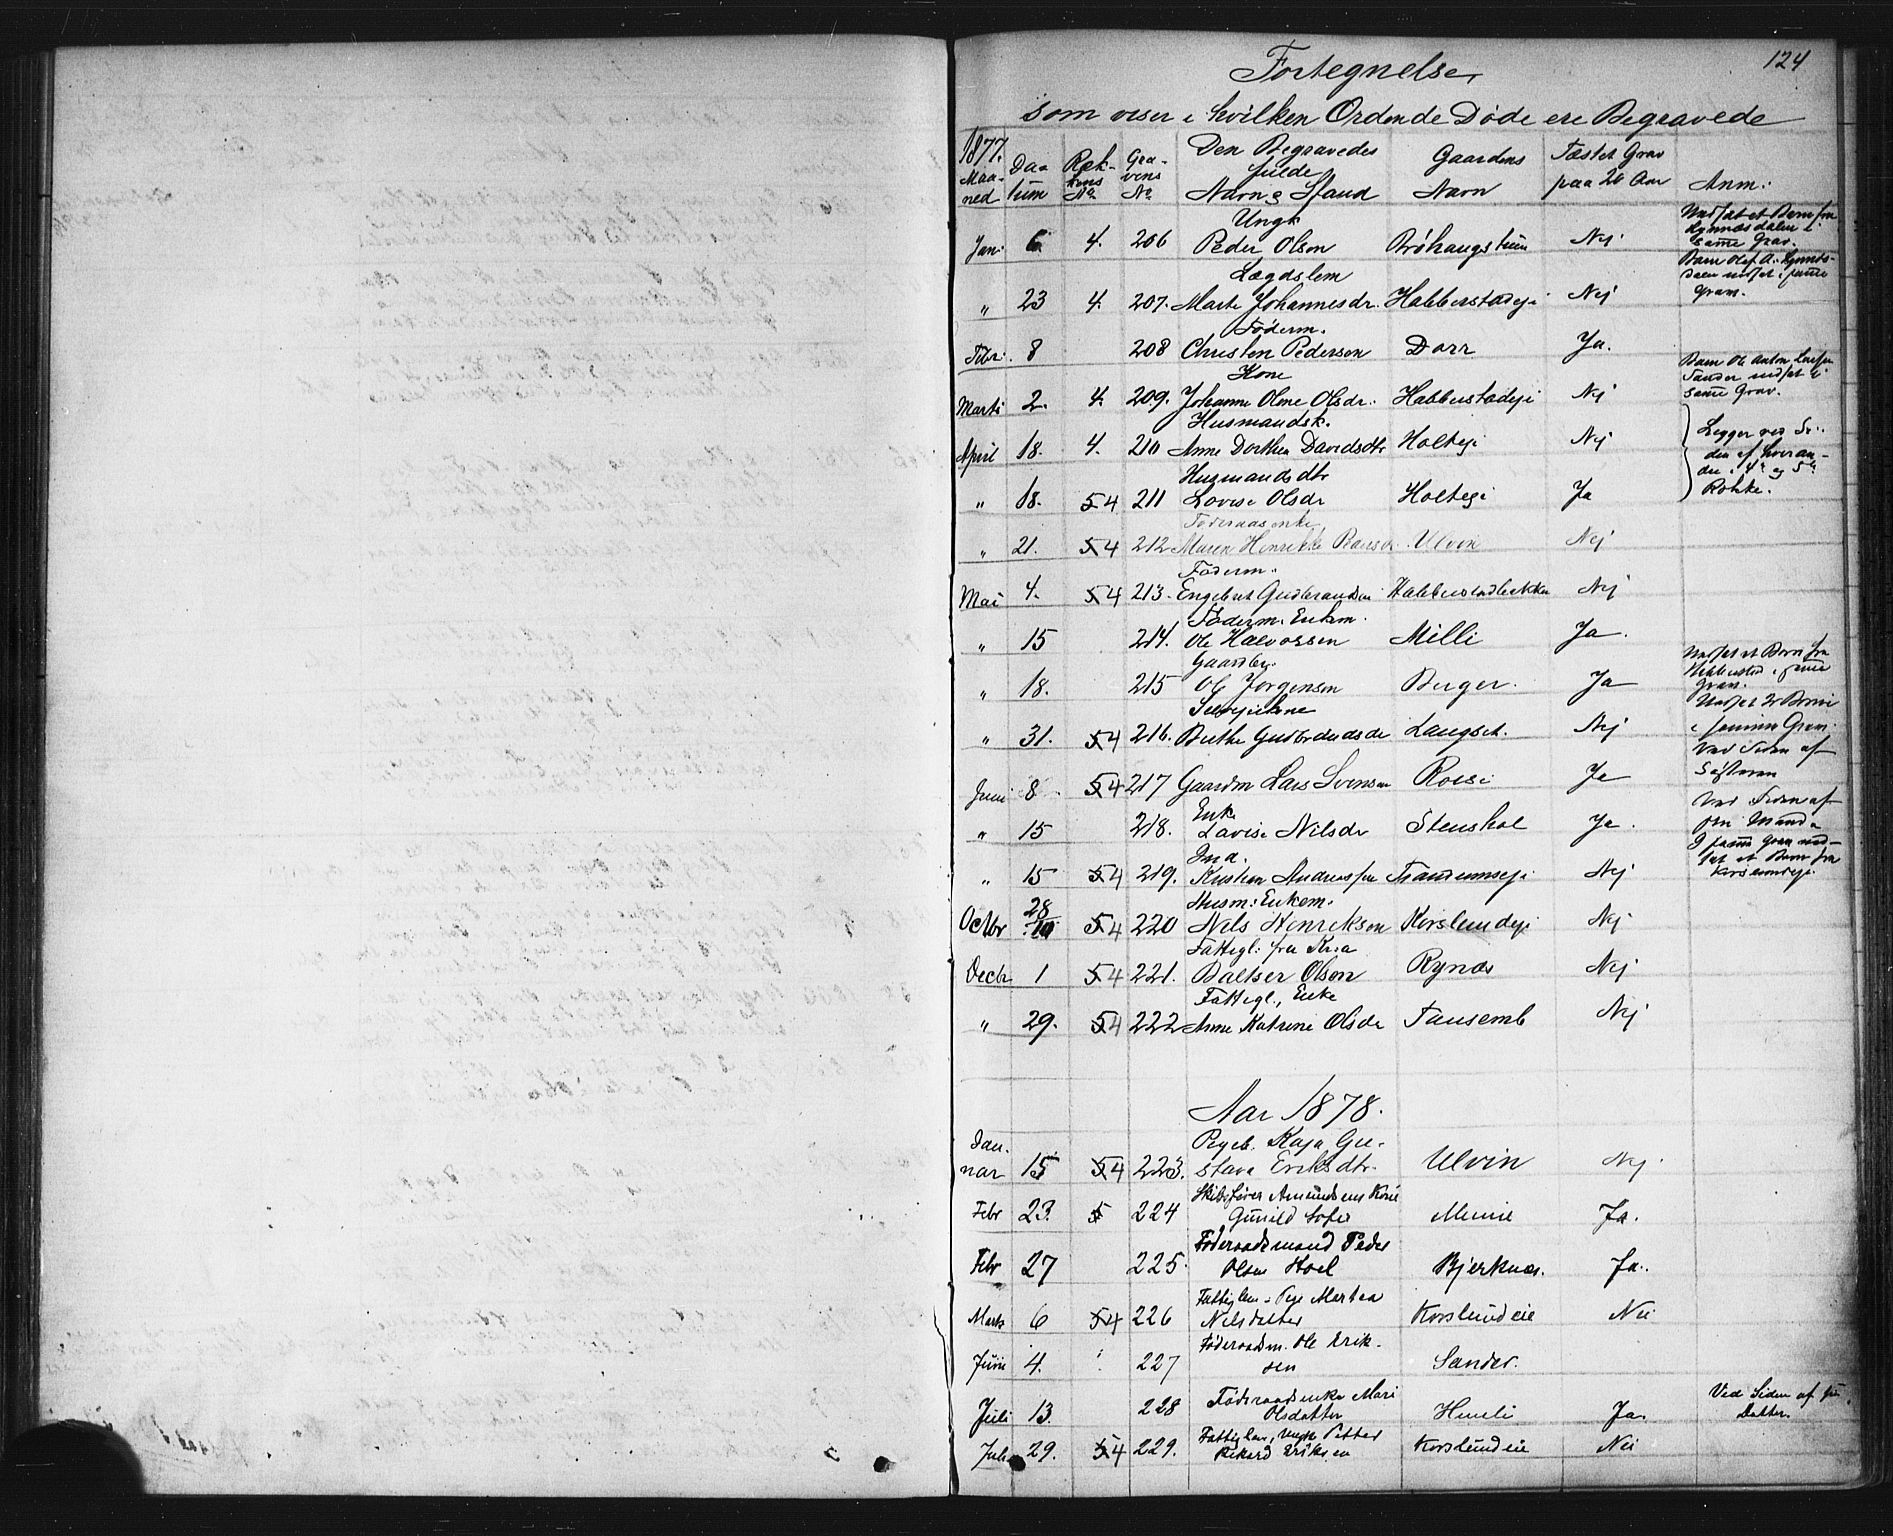 124
Fortegnelse
som viser i hvilken Orden de Døde ere Begravede
1877.
Maaned | Datum | Rækkens No | Gravens No | Den Begravedes fulde Navn & Stand | Gaardens Navn | Fæstet Grav paa 20 Aar | Anm:
Ungk
Jan: 6. 4. 206 Peder Olsen Nej. Nedsat et Barn fra i samme Grav.
Lægdslem
" 23 4. 207. Marte Johannesdr. Habberstadeje Nej Barn Olaf A. nedsat i samme Grav.
Föderm.
Febr. 8 208 Christen Pedersen Dorr Ja.
Kone
Marts 2. 4. 209. Johanne Oline Olsdr. Habberstadeje Nej Barn Ole Anton Sander nedsat i samme Grav.
Husmandsk.
April 18. 4. 210 Anne Dorthea Davidsdtr Holteje Nej Legger ved Siden af hverandre i 4de og 5te Række.
Husmandsdtr
" 18. 5 4 211 Lovise Olsdr Holteje Ja
Föderaadsenke
" 21. 5 4 212 Maren Henrikke Ulvin Nej
Föderm.
Mai 4. 5 4 213. Engebret Gudbrandsen Habberstadbakken Nej
Föderm. Enkem.
" 15 214. Ole Halvorsen Milli Ja.
Gaardbr.
" 18. 215 Ole Jörgensen Berger. Ja Nedsat et Barn fra Habberstad i samme Grav.
Selvejerkone
" 31. 5 4 216. Berthe Gudbrandsdr Langset. Nej Nedsat 2 Börn i samme Grav.
Juni 8. 5 4 217 Gaardm Lars Svensen Ja Ved Siden af Søsteren
Enke
" 15 218. Lovise Nilsdr Stenshol Ja. Ved Siden af sin Mand
Ind.
" 15 5 4 219. Kristian Andreassen Trandumseje Nej I samme Grav nedsat et Barn fra Korslundeje.
Husm: Enkem.
Octbr 28/10 5 4 220 Nils Henriksen Korslundeje Nej
Fattigl: fra Kr:a
Decbr 1 5 4 221. Baltser Olsen Rynas Nej
Fattigl., Enke
" 29. 5 4 222 Anne Katrine Olsdr Tausemb Nej
Aar 1878.
Januar 15 5 4 223. Pigeb. Kaja Gustava Eriksdtr. Ulvin Nej.
Febr 23. 5 224 Skibsfører Amundsens Kone Gunild Sofie Minne Ja.
Febr 27 225. Föderaadsmand Peder Olsen Hoel Bjerknæs. Ja.
Marts 6 5 4 226 Fattiglem - Pige Martea Nilsdatter Korslundeie Nei
Juni 4. 227 Föderaadsm. Ole Eriksen Sander.
Juli 13. 228 Föderaadsenke Mari Olsdatter Ja. Ved Siden af sin Datter.
Juli 29. 5 4 229. Fattiglem, Ungk Petter Rikard Eriksen Korslundeie Nei